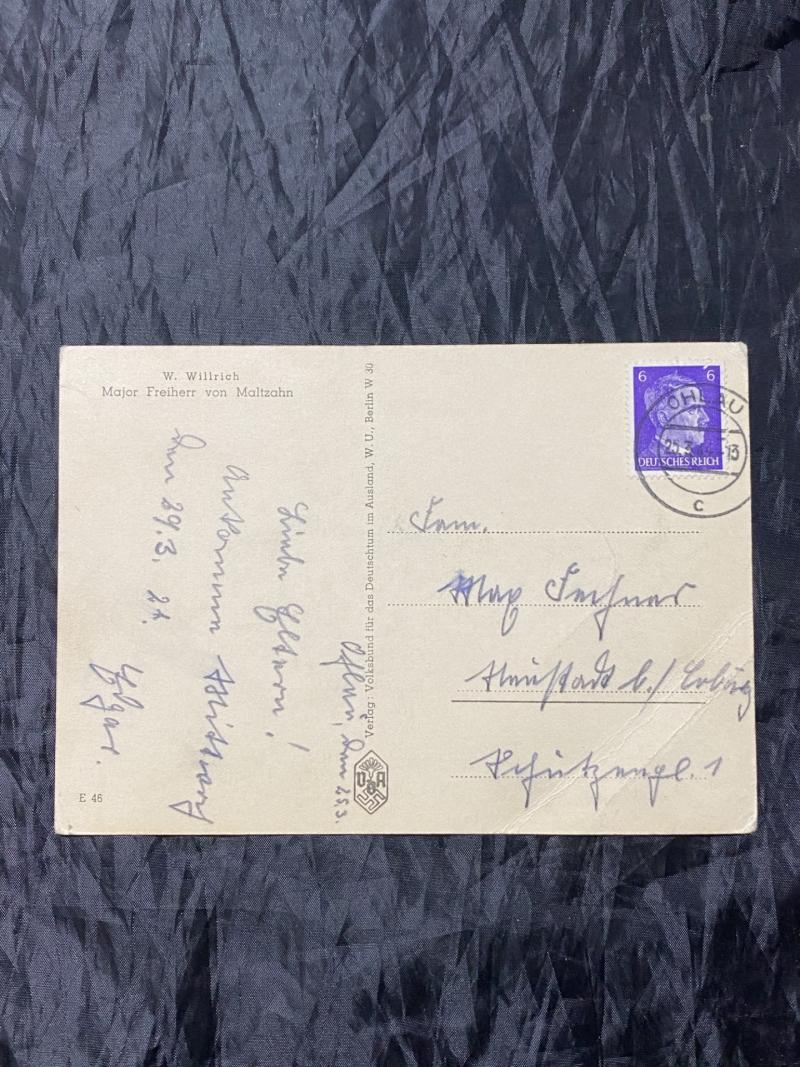 W. Willrich
Major Freiherr von Maltzahn
Ohlau, den 25.3.
Liebe Eltern!
Ankomme
Den 29.3.
Edgar.
E 46
Verlag: Volksbund für das Deutschtum im Ausland, W. U., Berlin W 30
VDA
6 6
DEUTSCHES REICH
OHLAU
25.3. 13
c
Fam.
Max Fechner
Neustadt b./Coburg
Schützenpl. 1